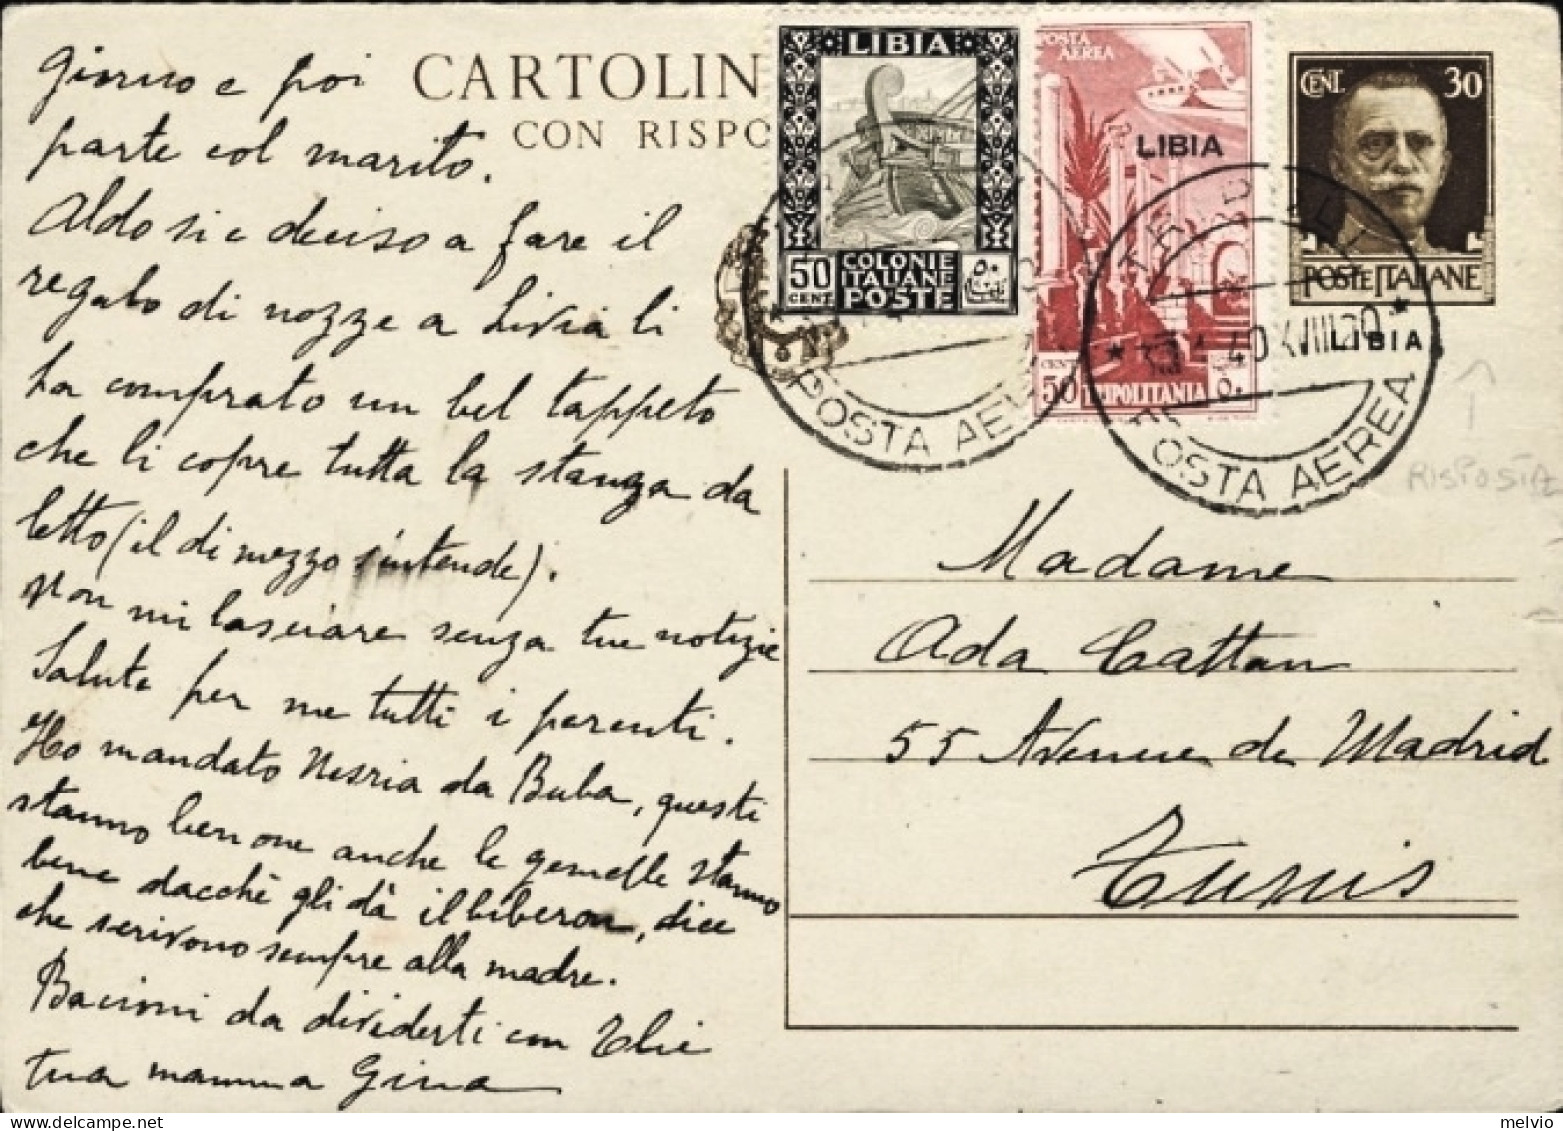 Giorno e poi
parte col marito.
Aldo si è deciso a fare il
regalo di nozze a Livia li
ha comprato un bel tappeto
che li copre tutta la stanza da
letto (il di mezzo s'intende).
Non mi lasciare senza tue notizie
Saluta per me tutti i parenti.
Ho mandato Nesria da Buba, questi
stanno benone anche le gemelle stanno
bene dacchè gli dà il biberon, dice
che scrivono sempre alla madre.
Bacioni da dividerti con Elie
tua mamma Gina
CARTOLIN
CON RISPO
LIBIA
50
CENT
COLONIE
ITALIANE
POSTE
POSTA
AEREA
LIBIA
CENT
50
TRIPOLITANIA
CENT. 30
POSTE ITALIANE
LIBIA
POSTA AEREA
POSTA AEREA
40 XVIII 20
RISPOSTA
Madame
Ada Cattan
55 Avenue de Madrid
Tunis
melvio